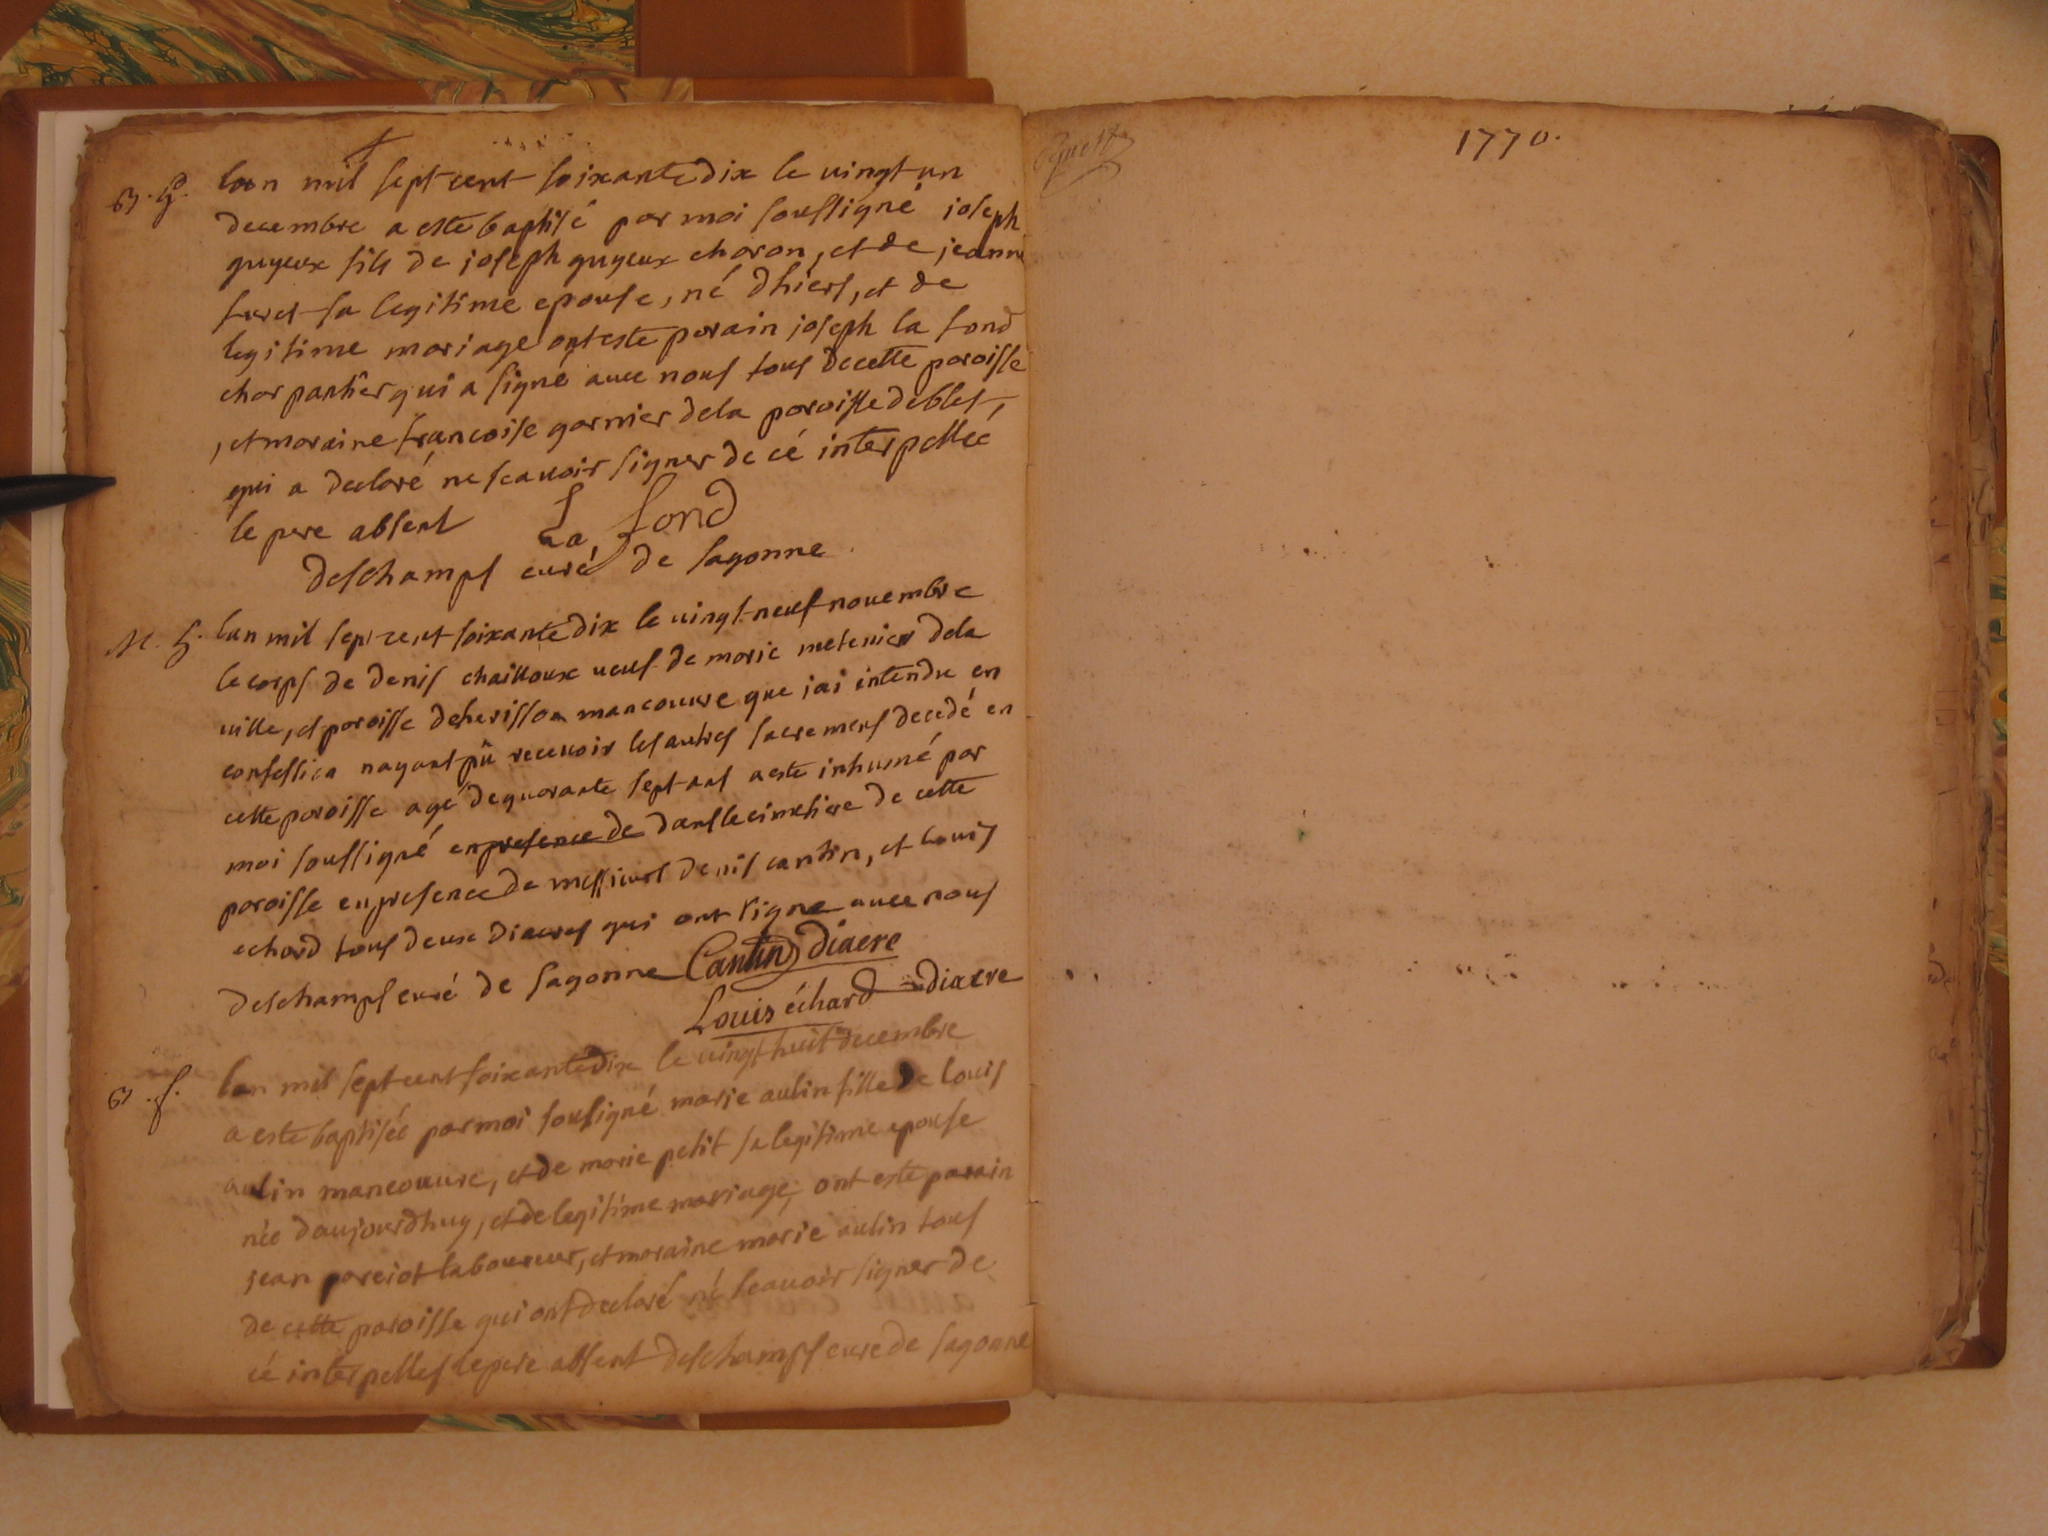 B. G. lan mil sept cent soixante dix le vingt un
decembre a este baptisé par moi soussigné joseph
guyeux fils de joseph guyeux charon, et de jeanne
furet sa legitime epouse, né dhiers, et de
legitime mariage ont este parain joseph la fond
charpantier qui a signé avec nous tous de cette paroisse
, et maraine francoise garnier de la paroisse de blet,
qui a declaré ne scavoir signer de cé interpellée
le pere absent La fond
deschamps curé de sagonne
M. h. lan mil sept cent soixante dix le vingt neuf novembre
le corps de denis chailloux veuf de marie metenier de la
ville, et paroisse deherisson maneouvre que jai intendu en
confession nayant pû recevoir les autres sacremens decedé en
cette paroisse agé de quarante sept ans a este inhumé par
moi soussigné en presence de dans le cimetiere de cette
paroisse en presence de messieurs denis cantin, et louis
echard tous deux diacres qui ont signe avec nous
deschamps curé de sagonne Cantin diacre
Louis échard diacre
B. f. lan mil sept cent soixante dix le vingt huit decembre
a este baptisée par moi sousigné marie aulin fille de louis
aulin maneouvre, et de marie petit sa legitime epouse
née daujourdhuy, et de legitime mariage, ont este parain
jean pareiot laboureur, et maraine marie aulin tous
de cette paroisse qui ont declaré né scavoir signer de
cé interpelles le pere absent deschamps cure de sagonne
1770.